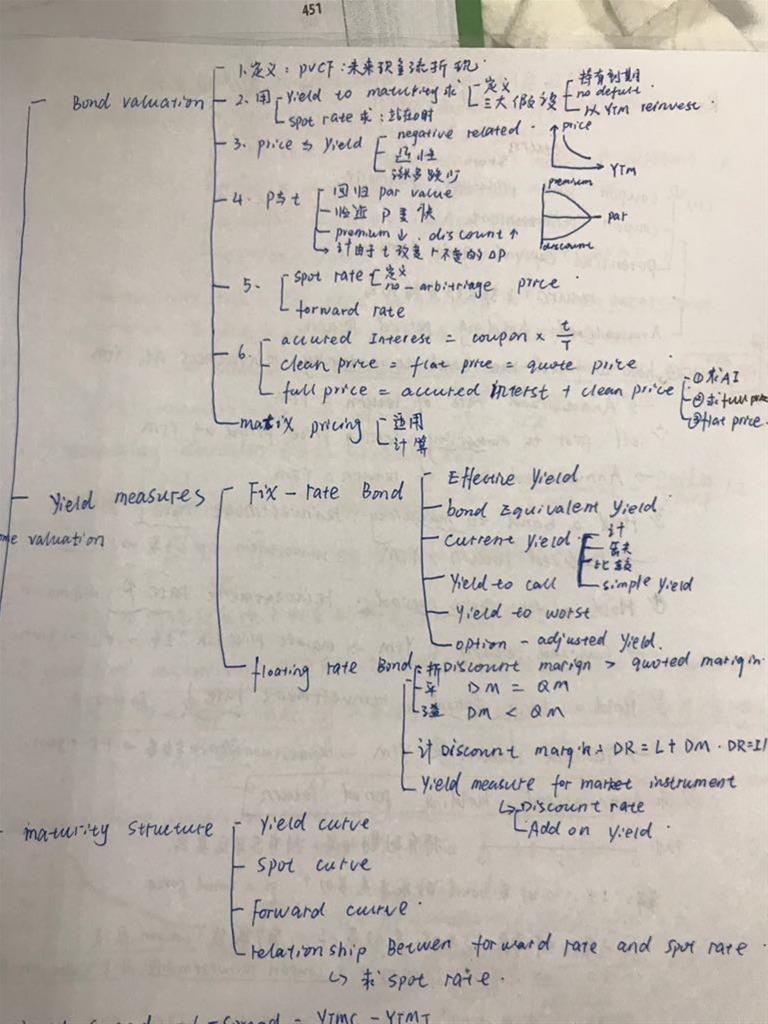 451
1. 定义：PVCF：未来现金流折现.
Bond valuation
2. 用 Yield to maturity 求 定义 持有到期
三大假设 no defult
以 YTM reinvest.
spot rate 求：站在0时
3. price 与 yield negative related.
凸性
涨多跌少
price
YTM
4. P与t 回归 par value
临近 P 变快
premium↓. discount↑
计由于 t 改变 r 不变的 ΔP
premium
par
discount
5. spot rate 定义
no-arbitriage price
forward rate
6. accured Interest = coupon × t/T
clean price = flat price = quote price
full price = accured interst + clean price ①求AI
②求full price
③flat price.
matix pricing 适用
计算
Yield measures Fix-rate Bond Effective Yield
bond Equivalent Yield
current Yield 计
丢失
比较
simple yield
valuation
Yield to call
Yield to worst
option-adjusted Yield.
floating rate Bond 折 Discount marign > quoted margin
平 DM = QM
溢 DM < QM
计 Discount margin: DR = L + DM.
Yield measure for market instrument
Discount rate
Add on Yield
maturity structure Yield curve
spot curve
Forward curve
relationship Betwen forward rate and spot rate
求 spot rate.